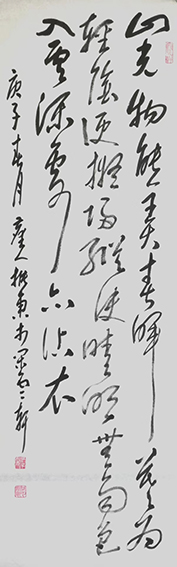 山光物態弄春暉莫為
輕陰便擬歸縱使晴明無雨色
入雲深處亦沾衣
庚子
月